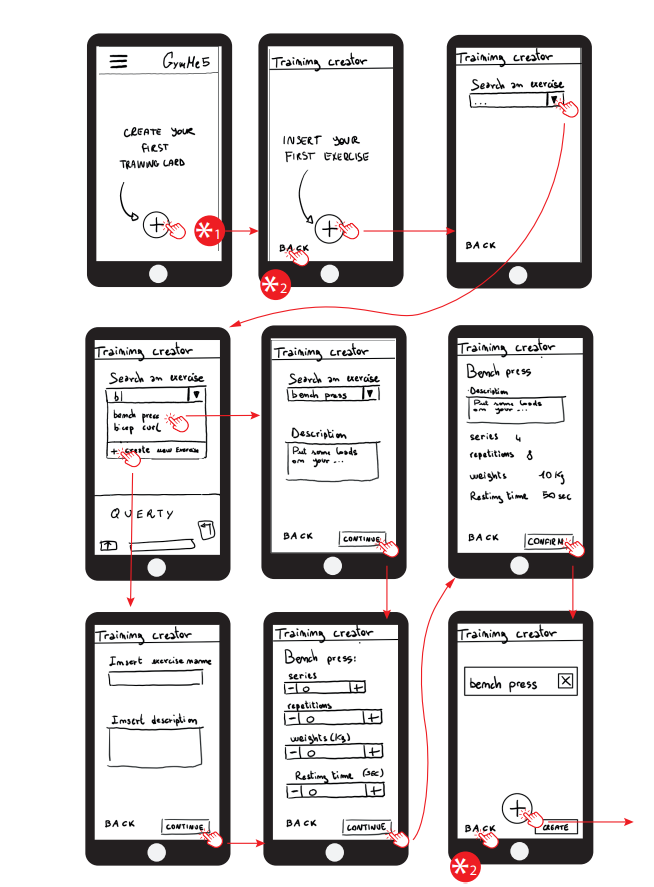 GymMe5
CREATE YOUR
FIRST
TRAINING CARD
*1
Training creator
INSERT YOUR
FIRST EXERCISE
BACK
*2
Training creator
Search an exercise
...
BACK
Training creator
Search an exercise
b|
bench press
bicep curl
+ create new Exercise
QUERTY
Training creator
Search an exercise
bench press
Description
Put some loads
on your ...
BACK CONTINUE
Training creator
Bench press
Description
Put some loads
on your ...
series 4
repetitions 8
weights 40 Kg
Resting time 50 sec
BACK CONFIRM
Training creator
Insert exercise name
Insert description
BACK CONTINUE
Training creator
Bench press:
series
- 0 +
repetitions
- 0 +
weights (Kg)
- 0 +
Resting time (SEC)
- 0 +
BACK CONTINUE
Training creator
bench press X
+
BACK CREATE
*2